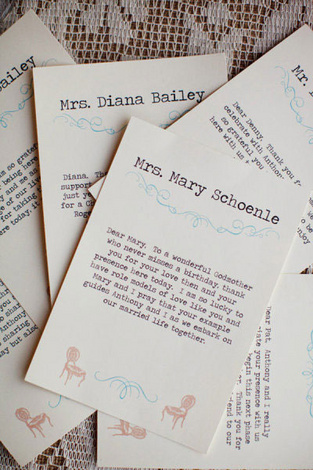 Bailey
Mrs. Diana Bailey
Mr.
Dear Denny, Thank you f
celebrate with Anthon
so grateful you
here with us
Diana,
support
just y
for a G
Roge
Mrs. Mary Schoenle
Dear Mary, To a wonderful Godmother
who never misses a birthday, thank
you for your love then and your
presence here today. I am so lucky to
have role models of love like you and
Mary and I pray that your example
guides Anthony and I as we embark on
our married life together.
so grateful
being here
today.
sharing
may but also
Dear Pat, Anthony and I really
iate your presence with us
begin this next phase
er. Thank you for
end to our